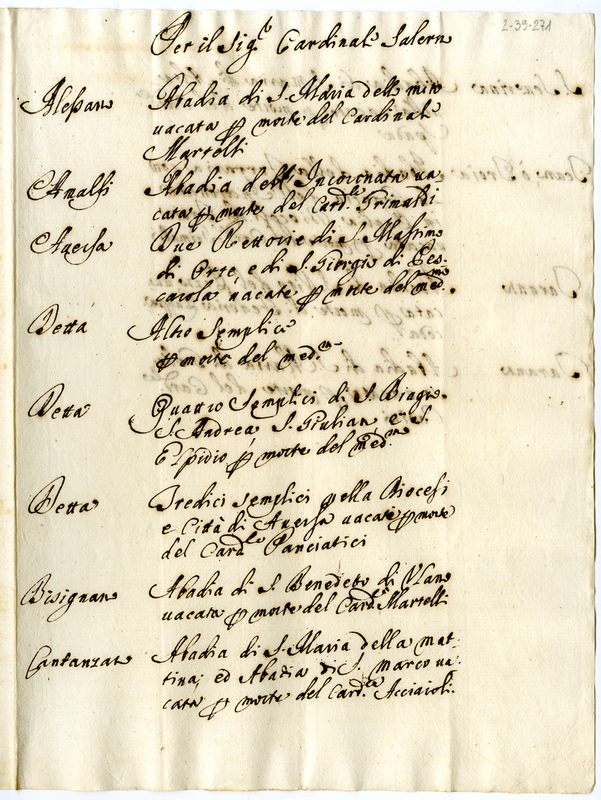 2-39-271
Per il Sig.r Cardinale Salerno
Alessano Abadia di S. Maria dello mito
vacata p morte del Cardinale
Martelli
Amalfi Abadia dell' Incoronata va
cata p morte del Card.le Grimaldi
Aversa Due Rettorie di S. Massimo
di Orte, e di S. Giorgio di Pes
carola vacate p morte del med.mo
Detta Altro Semplice
p morte del med.mo
Detta Quattro Semplici di S. Biagio
S. Andrea S. Giuliano e S.
Elpidio p morte del med.mo
Detta Tredici Semplici nella Diocesi
e Città di Aversa vacate p morte
del Card.le Panciatici
Bisignano Abadia di S. Benedeto di Ulano
vacata p morte del Card.le Martelli
Cantanzaro Abadia di S. Maria della mat-
tina; ed Abadia di S. Marco va-
cata p morte del Card.le Acciaioli.